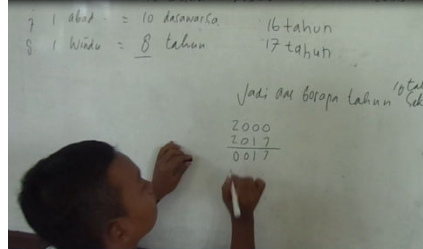 1 abad = 10 dasawarsa
8 1 windu = 8 tahun
16 tahun
17 tahun
Jadi berapa tahun
2000
2017
0017